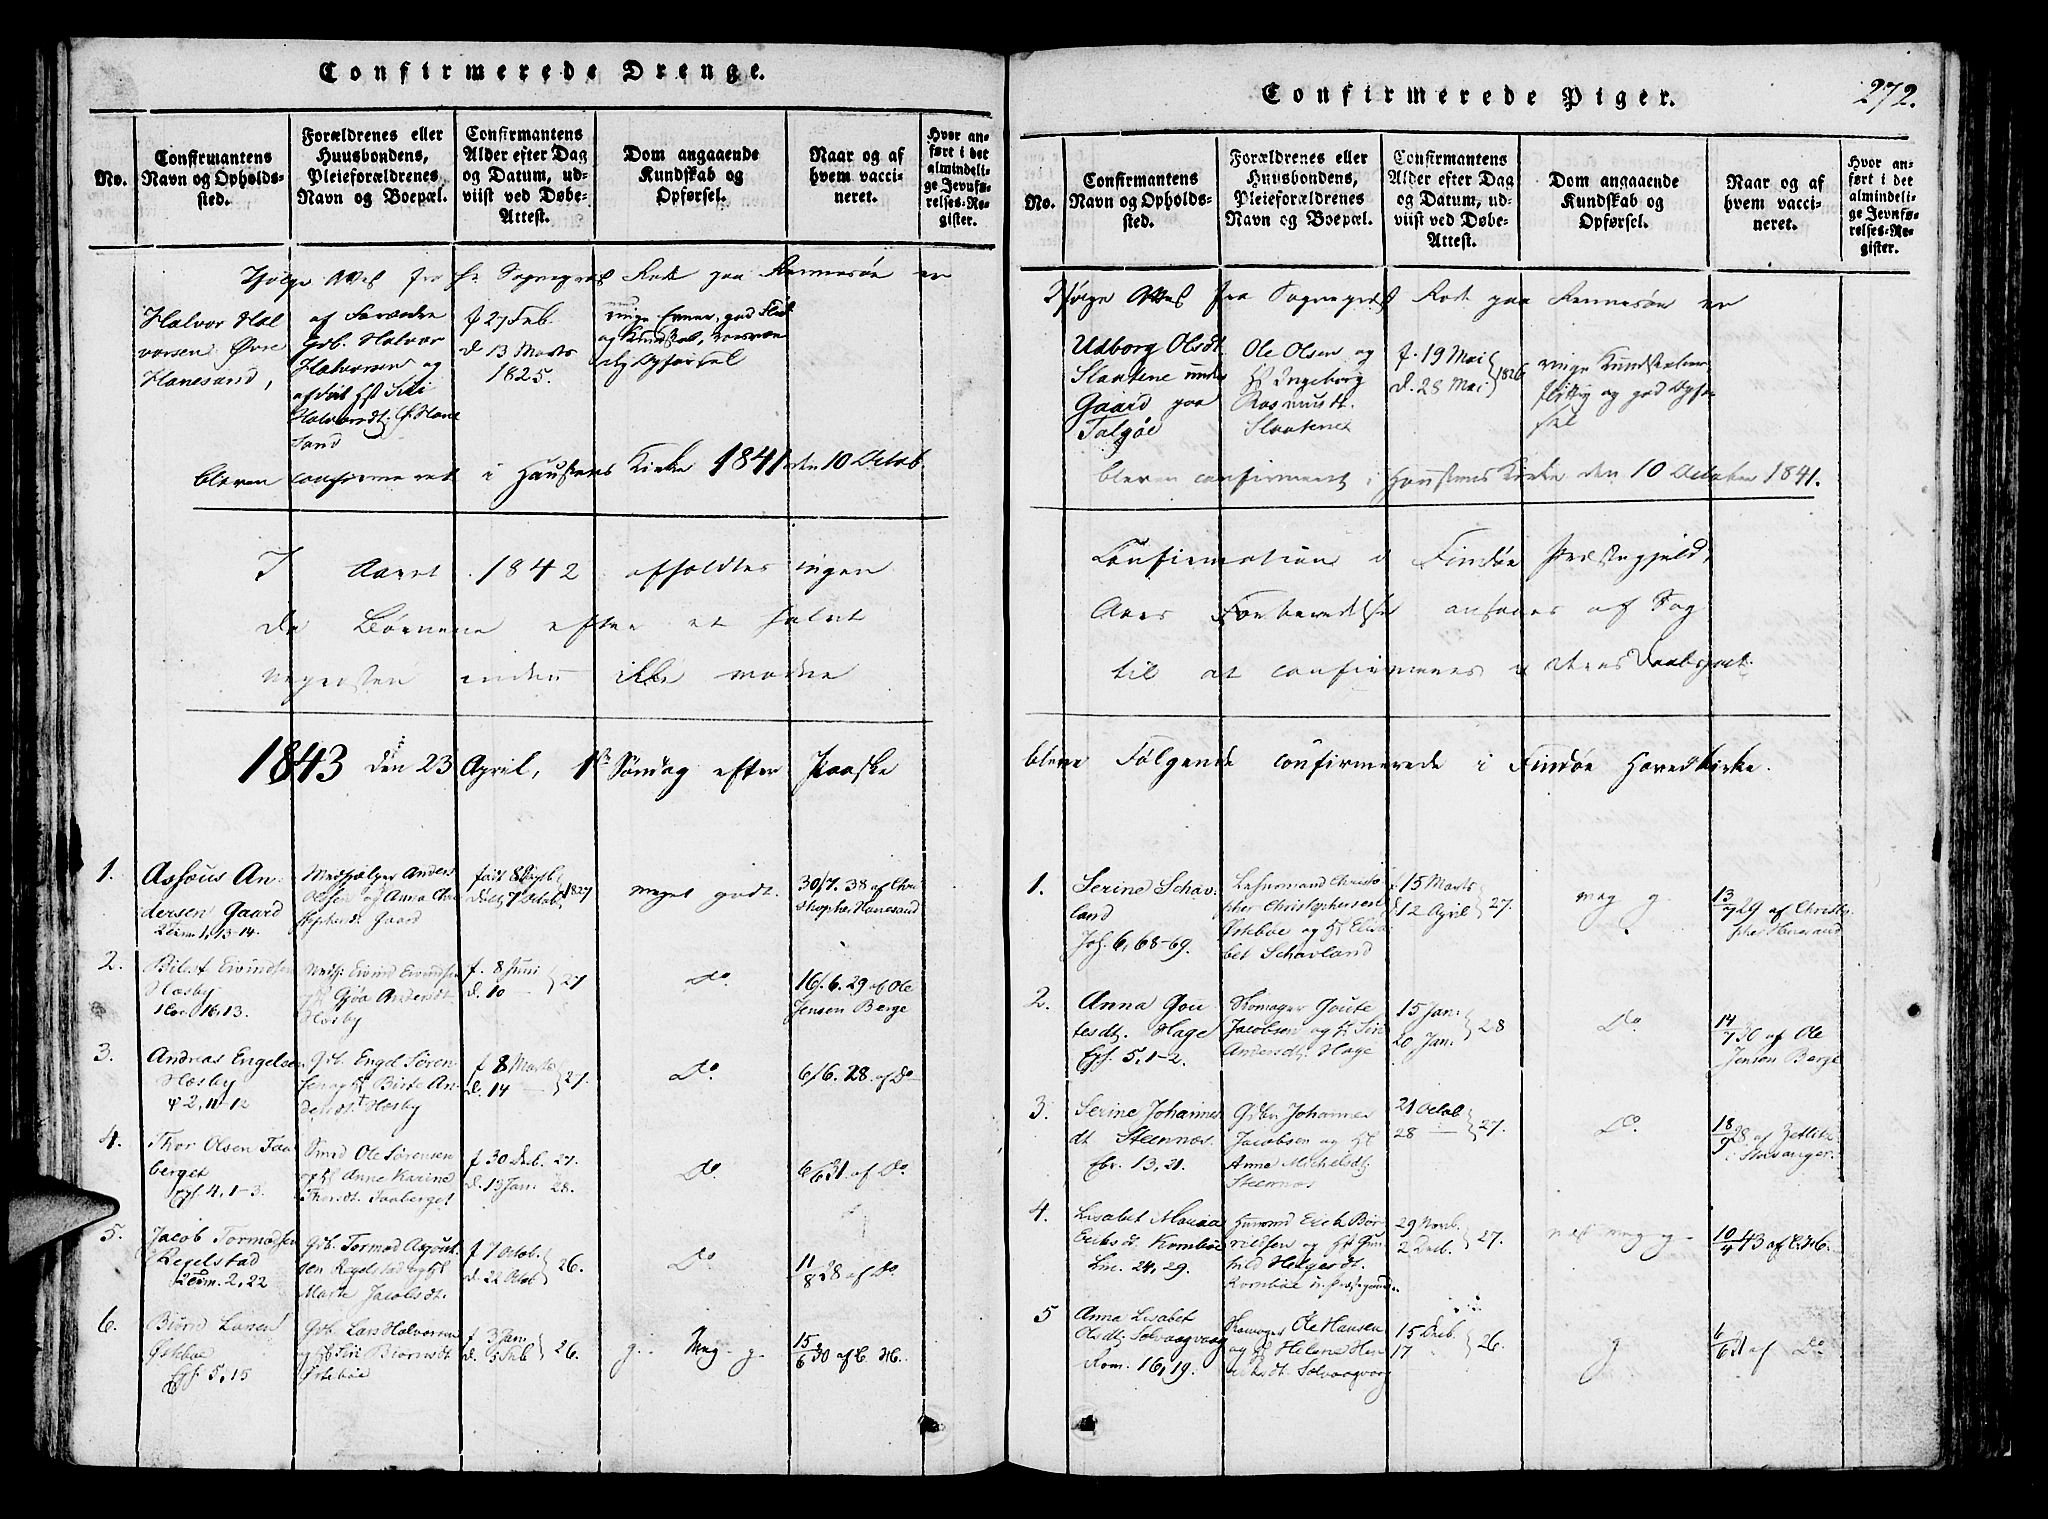 Confirmerede Drenge.
No.
Confirmantens
Navn og Opholds-
sted.
Forældrenes eller
Huusbondens,
Pleieforældrenes
Navn og Boepæl.
Confirmantens
Alder efter Dag
og Datum, ud-
viist ved Døbe-
Attest.
Dom angaaende
Kundskab og
Opførsel.
Naar og af
hvem vacci-
neret.
Hvor an-
ført i det
almindeli-
ge Jevnfø-
relses-Re-
gister.
Ifølge Attest fra Hr Sognepræst Rode paa Rennesøe er
Halvor Hal
vorsen Øvre
Hanesand,
Gdb. Halvor
Halvorsen og
Siri
Halvorsdt: Ø. Hane
sand
f 27 Feb.
d. 13 Marts
1825.
ringe Evner, god Flid
og Kundskab,
Opførsel
bleven confirmeret i Hausken Kirke 1841 den 10 Octob.
I Aaret 1842 afholdtes ingen
da Børnene efter et halvt
inden ikke
1843 den 23 April, 1ste Søndag efter Paaske
1.
An-
dersen Gaard
2 Tim. 1, 13-14.
Medhjælper Anders
Olsen og Anna Chri
Gaard
1827
meget godt.
30/7. 38 af Chri
stopher Hanesand
2.
Eivindsen
Hæsby
1 Cor. 16, 13.
Eivind Eivindsen
Gjøa Andersdt
Hæsby
f. 8 Juni
d. 10 —
27
Do
16/6. 29 af Ole
Jensen Berge
3.
Andreas Engelsen
Hæsby
ψ 2, 11-12
Gdb. Engel Søren-
sen og Hst Birte An-
dersdt Hæsby
f 8 Marts
d. 14 —
27.
Do.
6/6. 28. af Do
4.
Thor Olsen Faa
berget
Eph 4, 1-3.
Smed Ole Sørensen
og Hst Anne Karine
Thorsdt. Faaberget
f 30 Decb. 27.
d. 13 Jan. 28.
Do
6/6 31 af Do.
5.
Jacob Tormodsen
Regelstad
2 Tim. 2, 22
Gdb. Tormod
sen Regelstad og Hst
Marte Jacobsdt.
f 7 Octob.
d. 22 Octob
26.
Do
11/8 28 af Do
6.
Larsen
Østebøe
Eph. 5, 15
Gdb. Lars Halvorsen
og Hst Siri Biørnsdt
Østebøe
f 3 Jan.
d. 5 Feb
26.
g. - Meg. g.
15/6 30 af C. H.
Confirmerede Piger.
272.
No.
Confirmantens
Navn og Opholds-
sted.
Forældrenes eller
Huusbondens,
Pleieforældrenes
Navn og Boepæl.
Confirmantens
Alder efter Dag
og Datum, ud-
viist ved Døbe-
Attest.
Dom angaaende
Kundskab og
Opførsel.
Naar og af
hvem vacci-
neret.
Hvor an-
ført i det
almindeli-
ge Jevnfø-
relses-Re-
gister.
Ifølge Attest fra Sognepræst Rode paa Rennesøe er
Udborg Olsdt.
Slaatene under
Gaard paa
Talgøe
Ole Olsen og
Hst Ingeborg
Rasmusdt.
Slaatene
f. 19 Mai
d. 28 Mai
1826
ringe Kundskaber
flittig og god Opfør-
sel
bleven confirmeret i Hauskens Kirke den 10 October 1841.
Confirmation i Findøe Præstegjeld,
Aars Forberedelse ansaaes af
til at confirmeres i deres Daabspact.
bleve Følgende confirmerede i Findøe Hovedkirke.
1.
Serine Schav-
land
Joh. 6, 68-69.
Christo
pher Christophersen
Østebøe og Hst Elisa
bet Schavland
f 15 Marts
12 April
27.
meg g.
13/7 29 af Christo
pher Hanesand
2.
Anna Gou
tesdt. Hage
Eph. 5, 1-2.
Skomager Goute
Jacobsen og Hst Siri
Andersdt. Hage
15 Jan.
20 Jan.
28
Do.
14/7 30 af Ole
Jensen Berge
3.
Serine Johannes
dt Steennæs.
Ebr. 13, 21.
Gdbr Johannes
Jacobsen og Hst
Anne Michelsdt.
Steennæs
21 Octob
28 —
27.
Do.
18/9 28. af Zetlitz
i Stavanger.
4.
Lisabet Maria
Eriksdt Kombøe
Luc. 24, 29.
Huusmd Erich Bør-
rildsen og Hst Gun
hild Helgesdt.
Kombøe u. Præstegaard
29 Novb.
2 Decb.
27.
næst meg g.
10/4 43 af C. H.
5
Anna Lisabet
Olsdt. Solvaagvaag
Rom. 16, 19.
Skomager Ole Hansen
og Hst Helene Hen
riksdt. Solvaagvaag
15 Decb.
17
26.
g
6/6 31 af Do